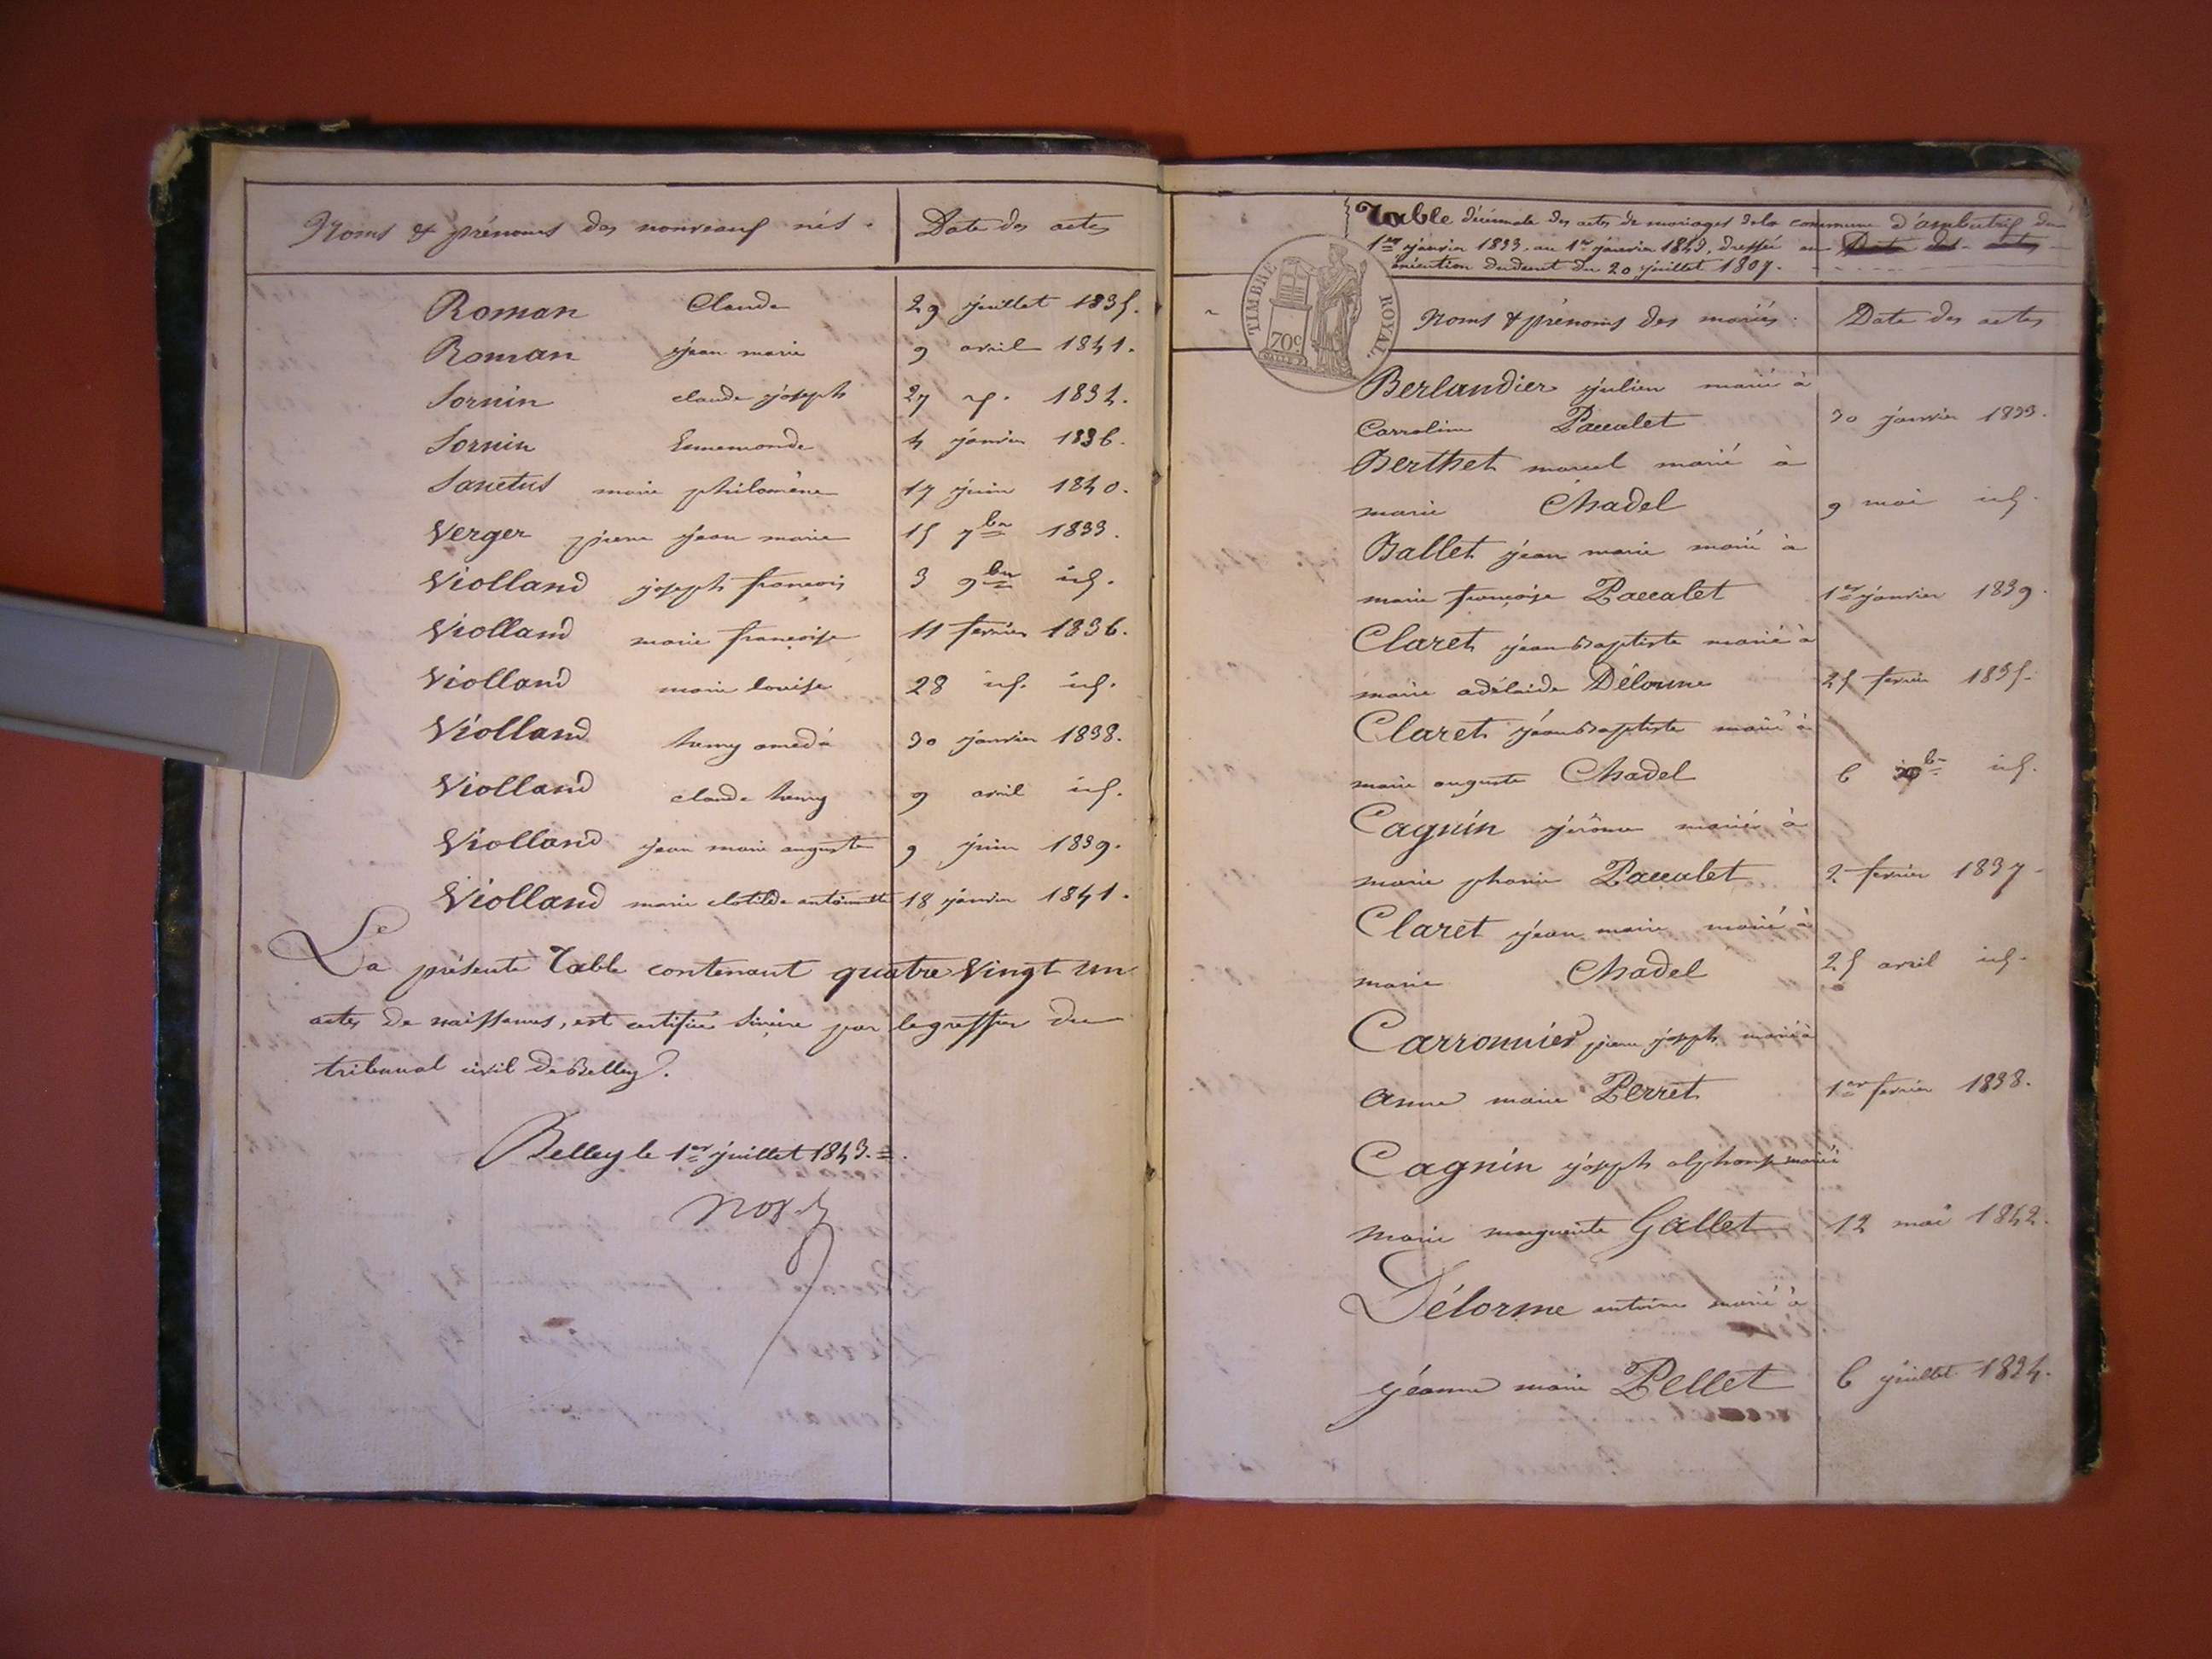 Noms & prénoms des nouveaux nés.
Date des actes
Roman Claude 29 juillet 1835.
Roman jean marie 9 avril 1841.
Sornin claude joseph 27 1834.
Sornin Ennemonde 4 janvier 1836.
Sanctus marie philomène 17 juin 1840.
Verger pierre jean marie 15 7bre 1833.
Violland joseph françois 3 9bre id.
Violland marie françoise 11 fevrier 1836.
Violland marie louise 28 id. id.
Violland henry amédé 30 janvier 1838.
Violland claude henry 9 avril id.
Violland jean marie auguste 9 juin 1839.
Violland marie clotilde antoinette 18 janvier 1841.
La présente Table contenant quatre Vingt un
actes de naissances, est certifiée sincère par le greffier du
tribunal civil de Belley.
Belley le 1er juillet 1843.
Table décennale des actes de mariages de la commune d'ambutrix du
1er janvier 1833, au 1er janvier 1843, dressée en Date des actes
exécution du décret du 20 juillet 1807.
TIMBRE ROYAL.
70c
Noms & prénoms des mariés.
Date des actes
Berlandier julien marié à
Carroline Paccalet 30 janvier 1833.
Berthet marcel marié à
marie Chadel 9 mai id.
Ballet jean marie marié à
marie françoise Paccalet 1er janvier 1839.
Claret jean Baptiste marié à
marie adélaide Délorme 25 fevrier 1835.
Claret jean Baptiste marié à
marie auguste Chadel 6 bre id.
Cagnin jérôme marié à
marie phanie Paccalet 2 fevrier 1837.
Claret jean marie marié à
marie Chadel 25 avril id.
Carronnier pierre joseph marié à
anne marie Perret 1er fevrier 1838.
Cagnin joseph alphonse marié
marie marguerite Gallet 12 mai 1842.
Délorme antoine marié à
jéanne marie Pellet 6 juillet 1834.